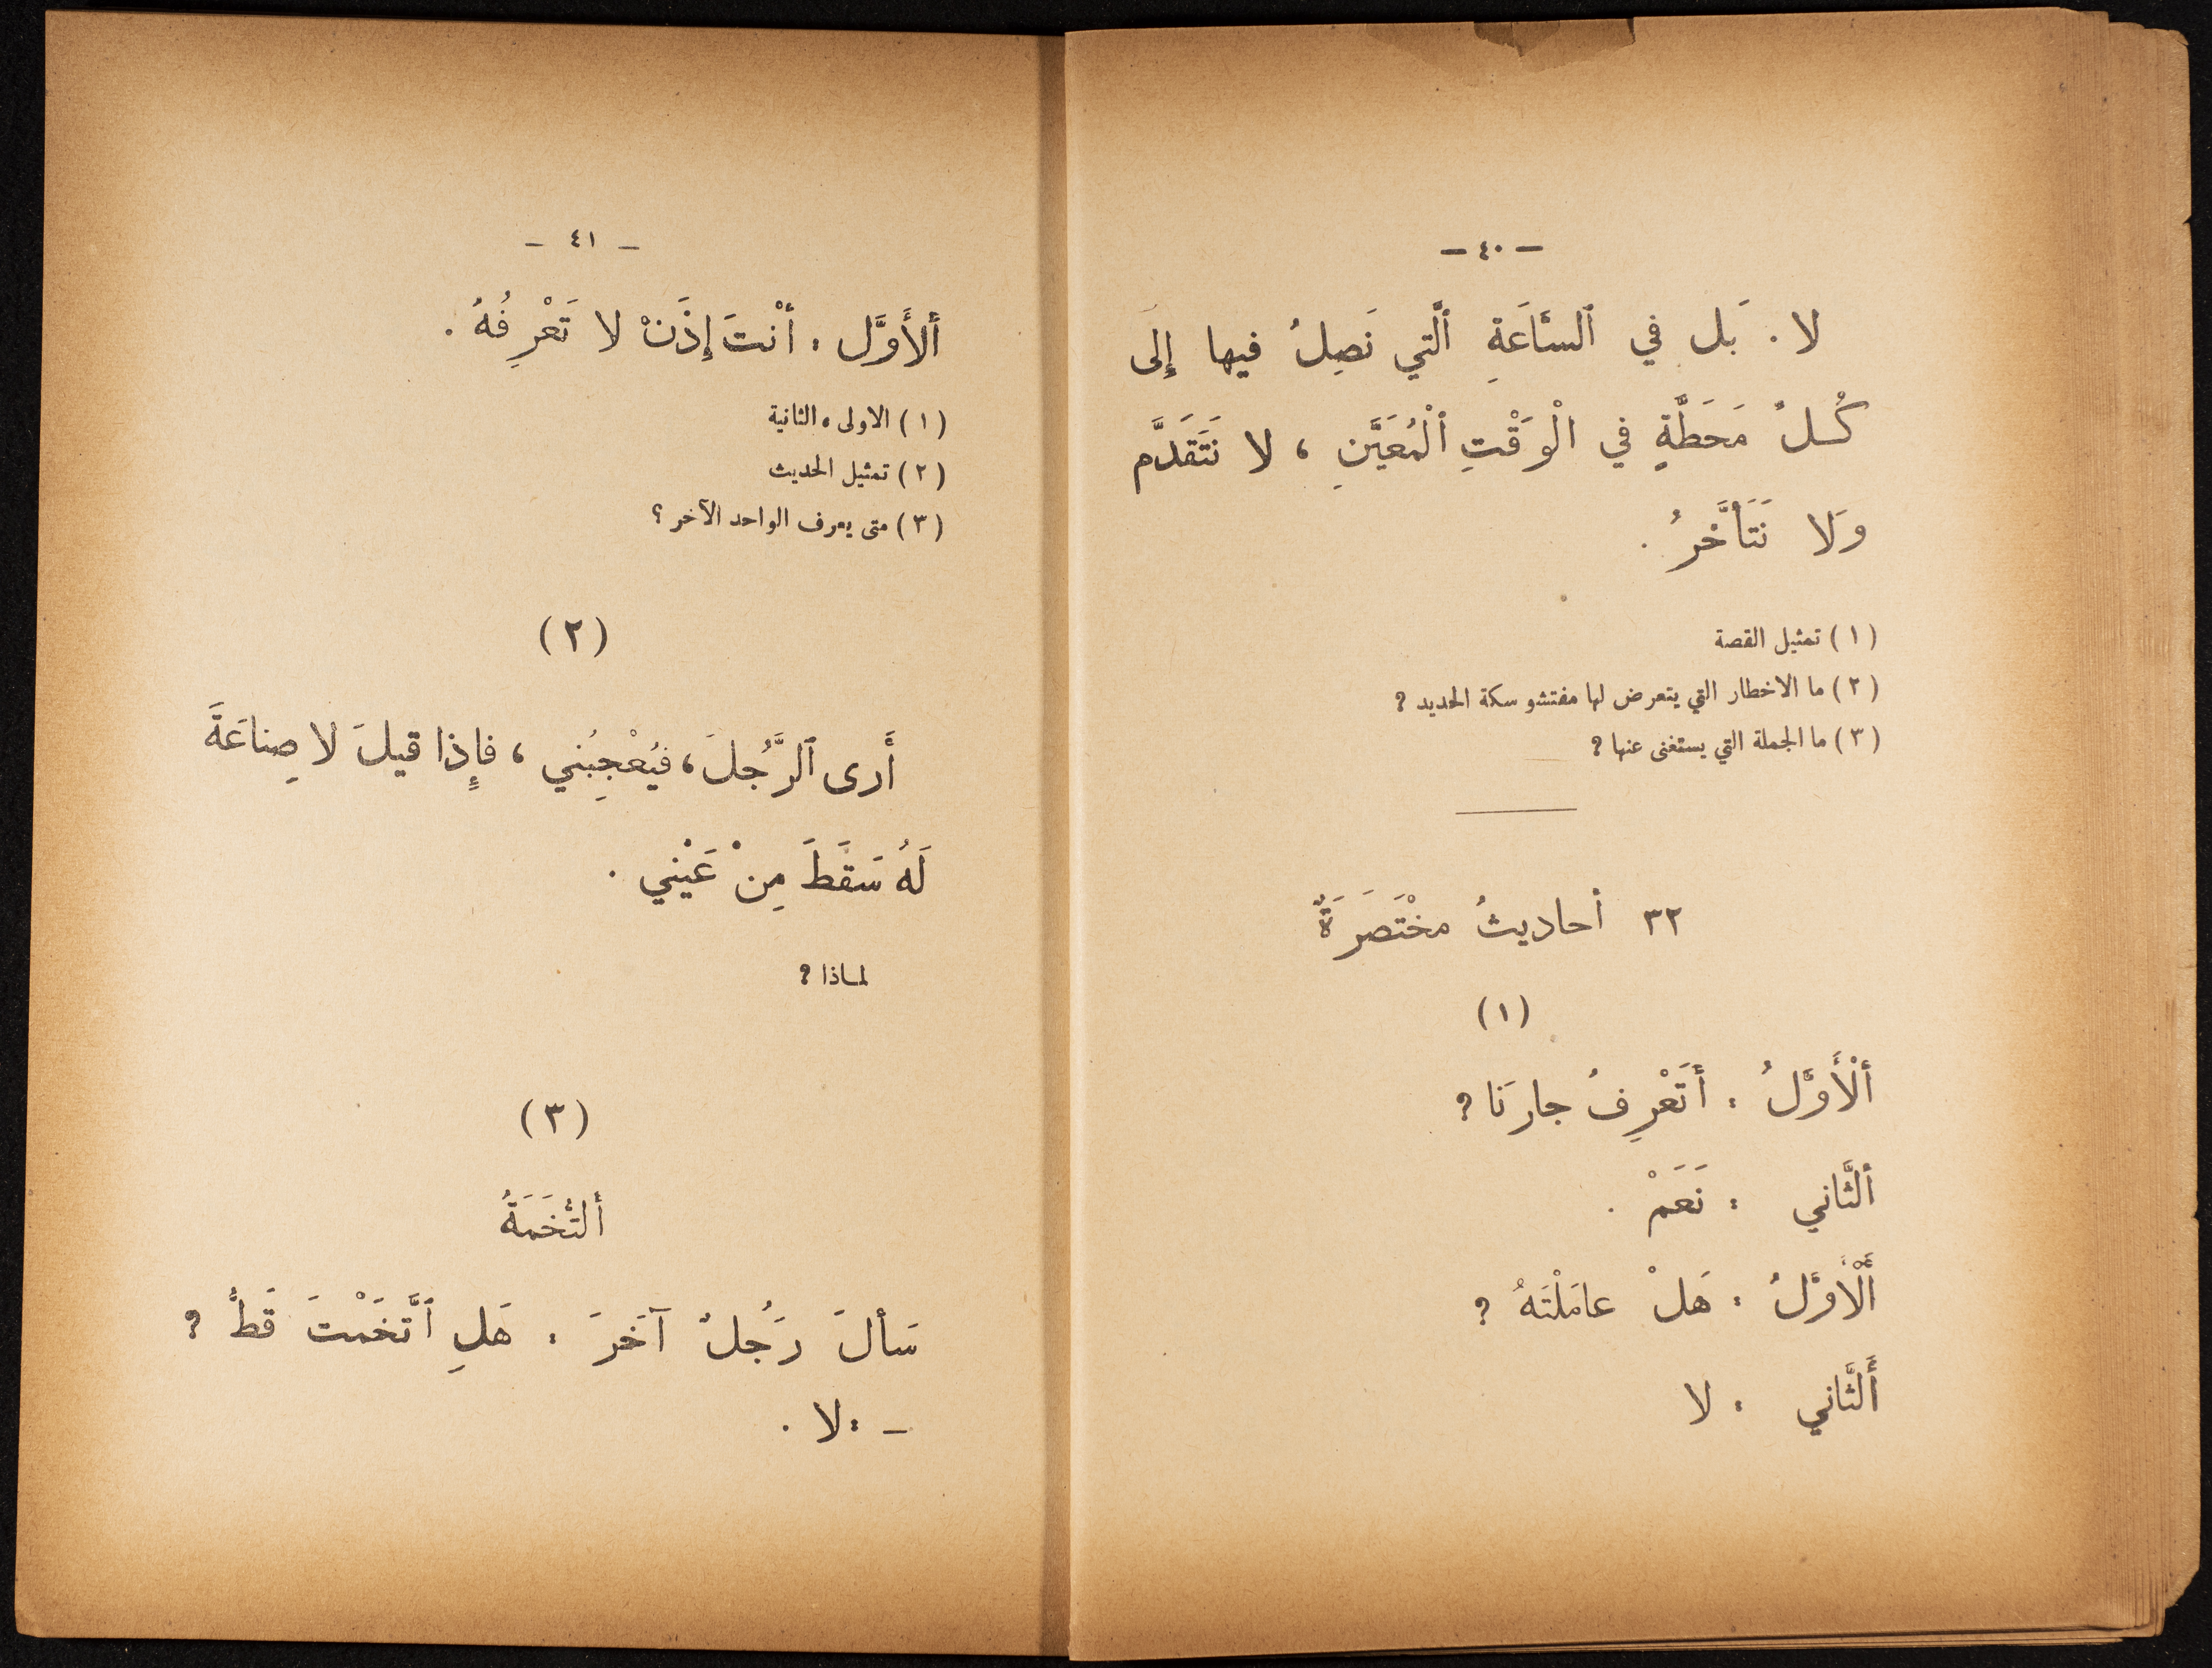 — ٤٠ —
لا . بَل في ٱلسَّاعَةِ ٱلَّتي نَصِلُ فيها إِلَى
كُـلّ مَحَطَّةٍ في الْوَقْتِ ٱلْمُعَيَّنِ ، لا نَتَقَدَّم
وَلا نَتَأَخَّرُ .
( ١ ) تمثيل القصة
( ٢ ) ما الاخطار التي يتعرض لها مفتشو سكة الحديد ?
( ٣ ) ما الجملة التي يستغنى عنها ?
٣٢ أحاديثُ مخْتَصَرَةٌ
( ١ )
ألْأَوَّلُ : أَتَعْرِفُ جارَنا ?
ألثَّاني : نَعَمْ .
أَلْأَوَّلُ : هَلْ عامَلْتَهُ ?
أَلثَّاني : لا
— ٤١ —
ألأَوَّل : أنْتَ إِذَنْ لا تَعْرِفُهُ .
( ١ ) الاولى ، الثانية
( ٢ ) تمثيل الحديث
( ٣ ) متى يعرف الواحد الآخر ؟
( ٢ )
أَرى ٱلرَّجُلَ ، فَيُعْجِبُني ، فإِذا قيلَ لا صِناعَةَ
لَهُ سَقَطَ مِنْ عَيْني .
لماذا ?
( ٣ )
أَلتُّخَمَةُ
سَألَ رَجُلٌ آخَرَ : هَلِ ٱتَّخَمْتَ قَطُّ ?
— : لا .